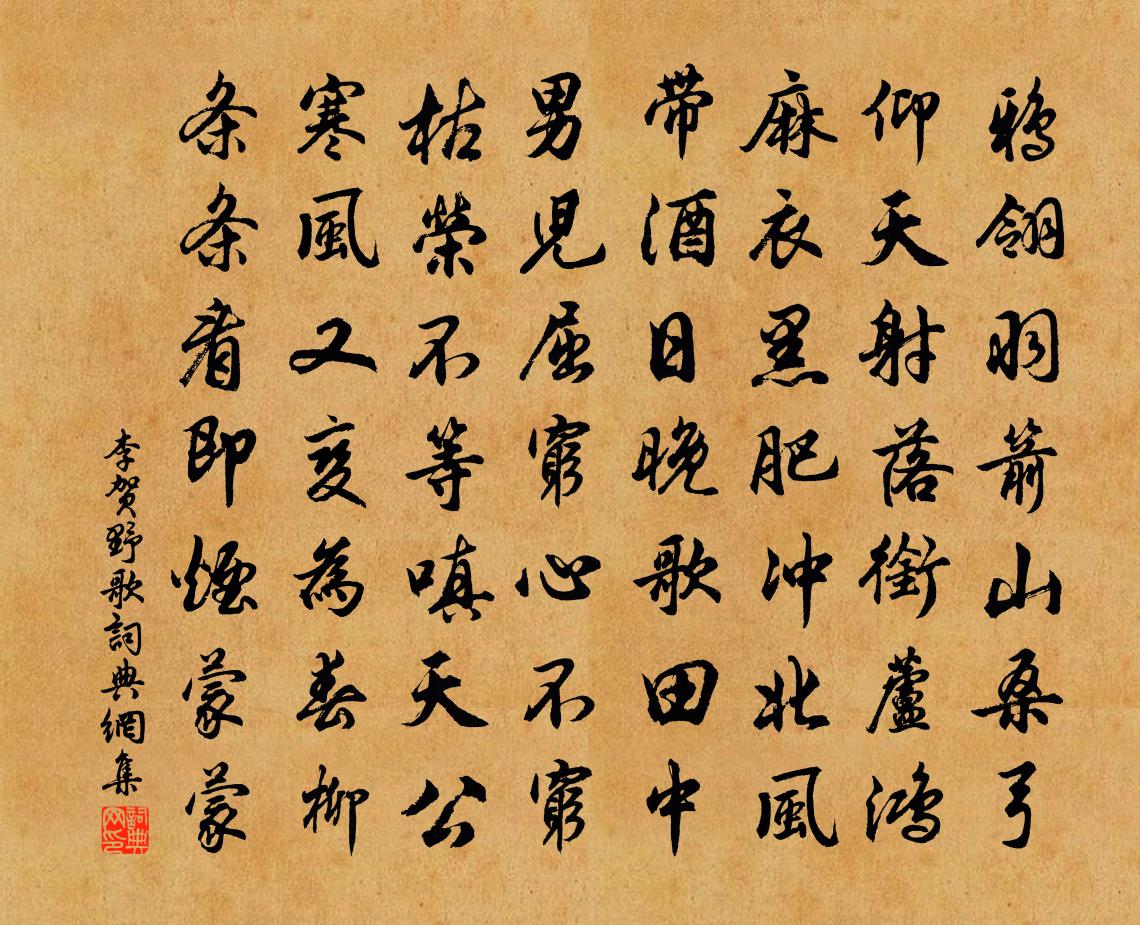 鴉翎羽箭山桑弓
仰天射落銜蘆鴻
麻衣黑肥冲北風
带酒日晚歌田中
男兒屈窮心不窮
枯榮不等嗔天公
寒風又變為春柳
条条看即煙蒙蒙
李賀野歌詞典網集
詞典网印